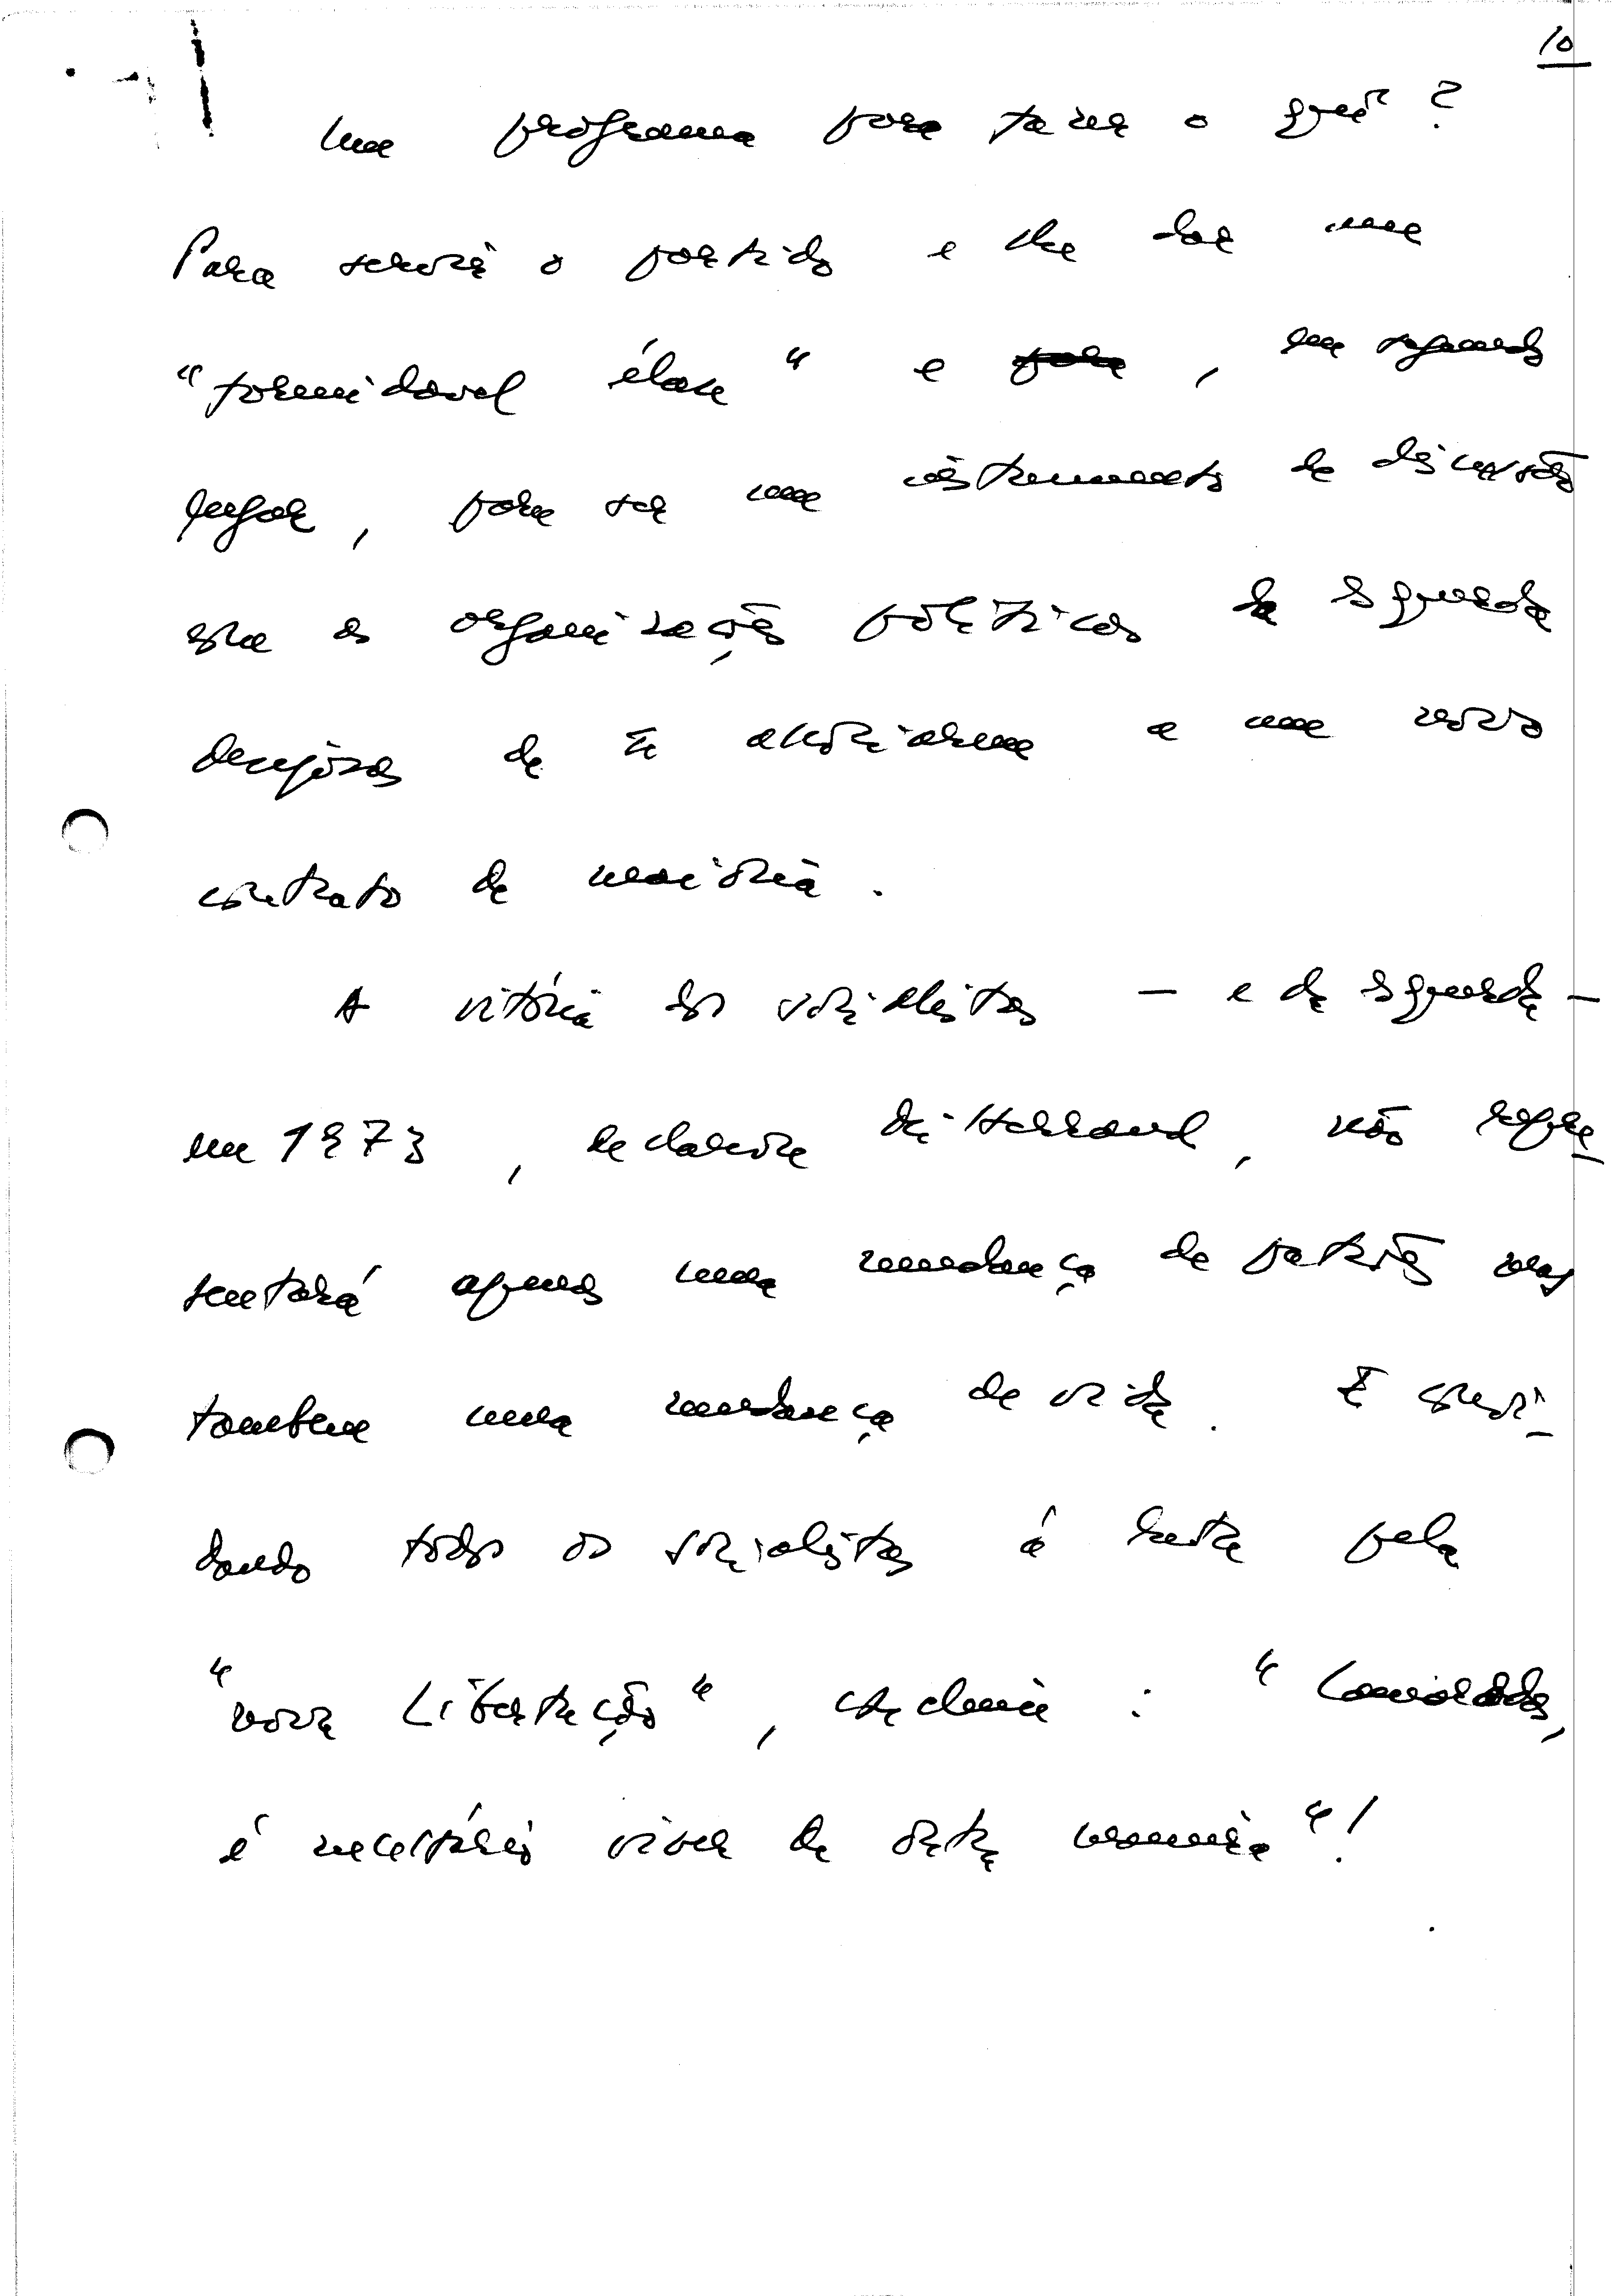 10
Um programa para fazer o quê?
Para servir o partido e lhe dar um
"formidavel élan" e para, em segundo
lugar, para ser um instrumento de discussão
com as organizações políticas de esquerda
desejosas de se associarem a um novo
contrato de maioria.
A vitória dos socialistas — e da esquerda —
em 1973, declarou Mitterrand, não repre
sentará apenas uma mudança de patrões mas
tambem uma mudança de vida. E convi-
dando todos os socialistas á luta pela
"nova Libertação", exclamou: "Camaradas,
é necessário viver de outra maneira"!